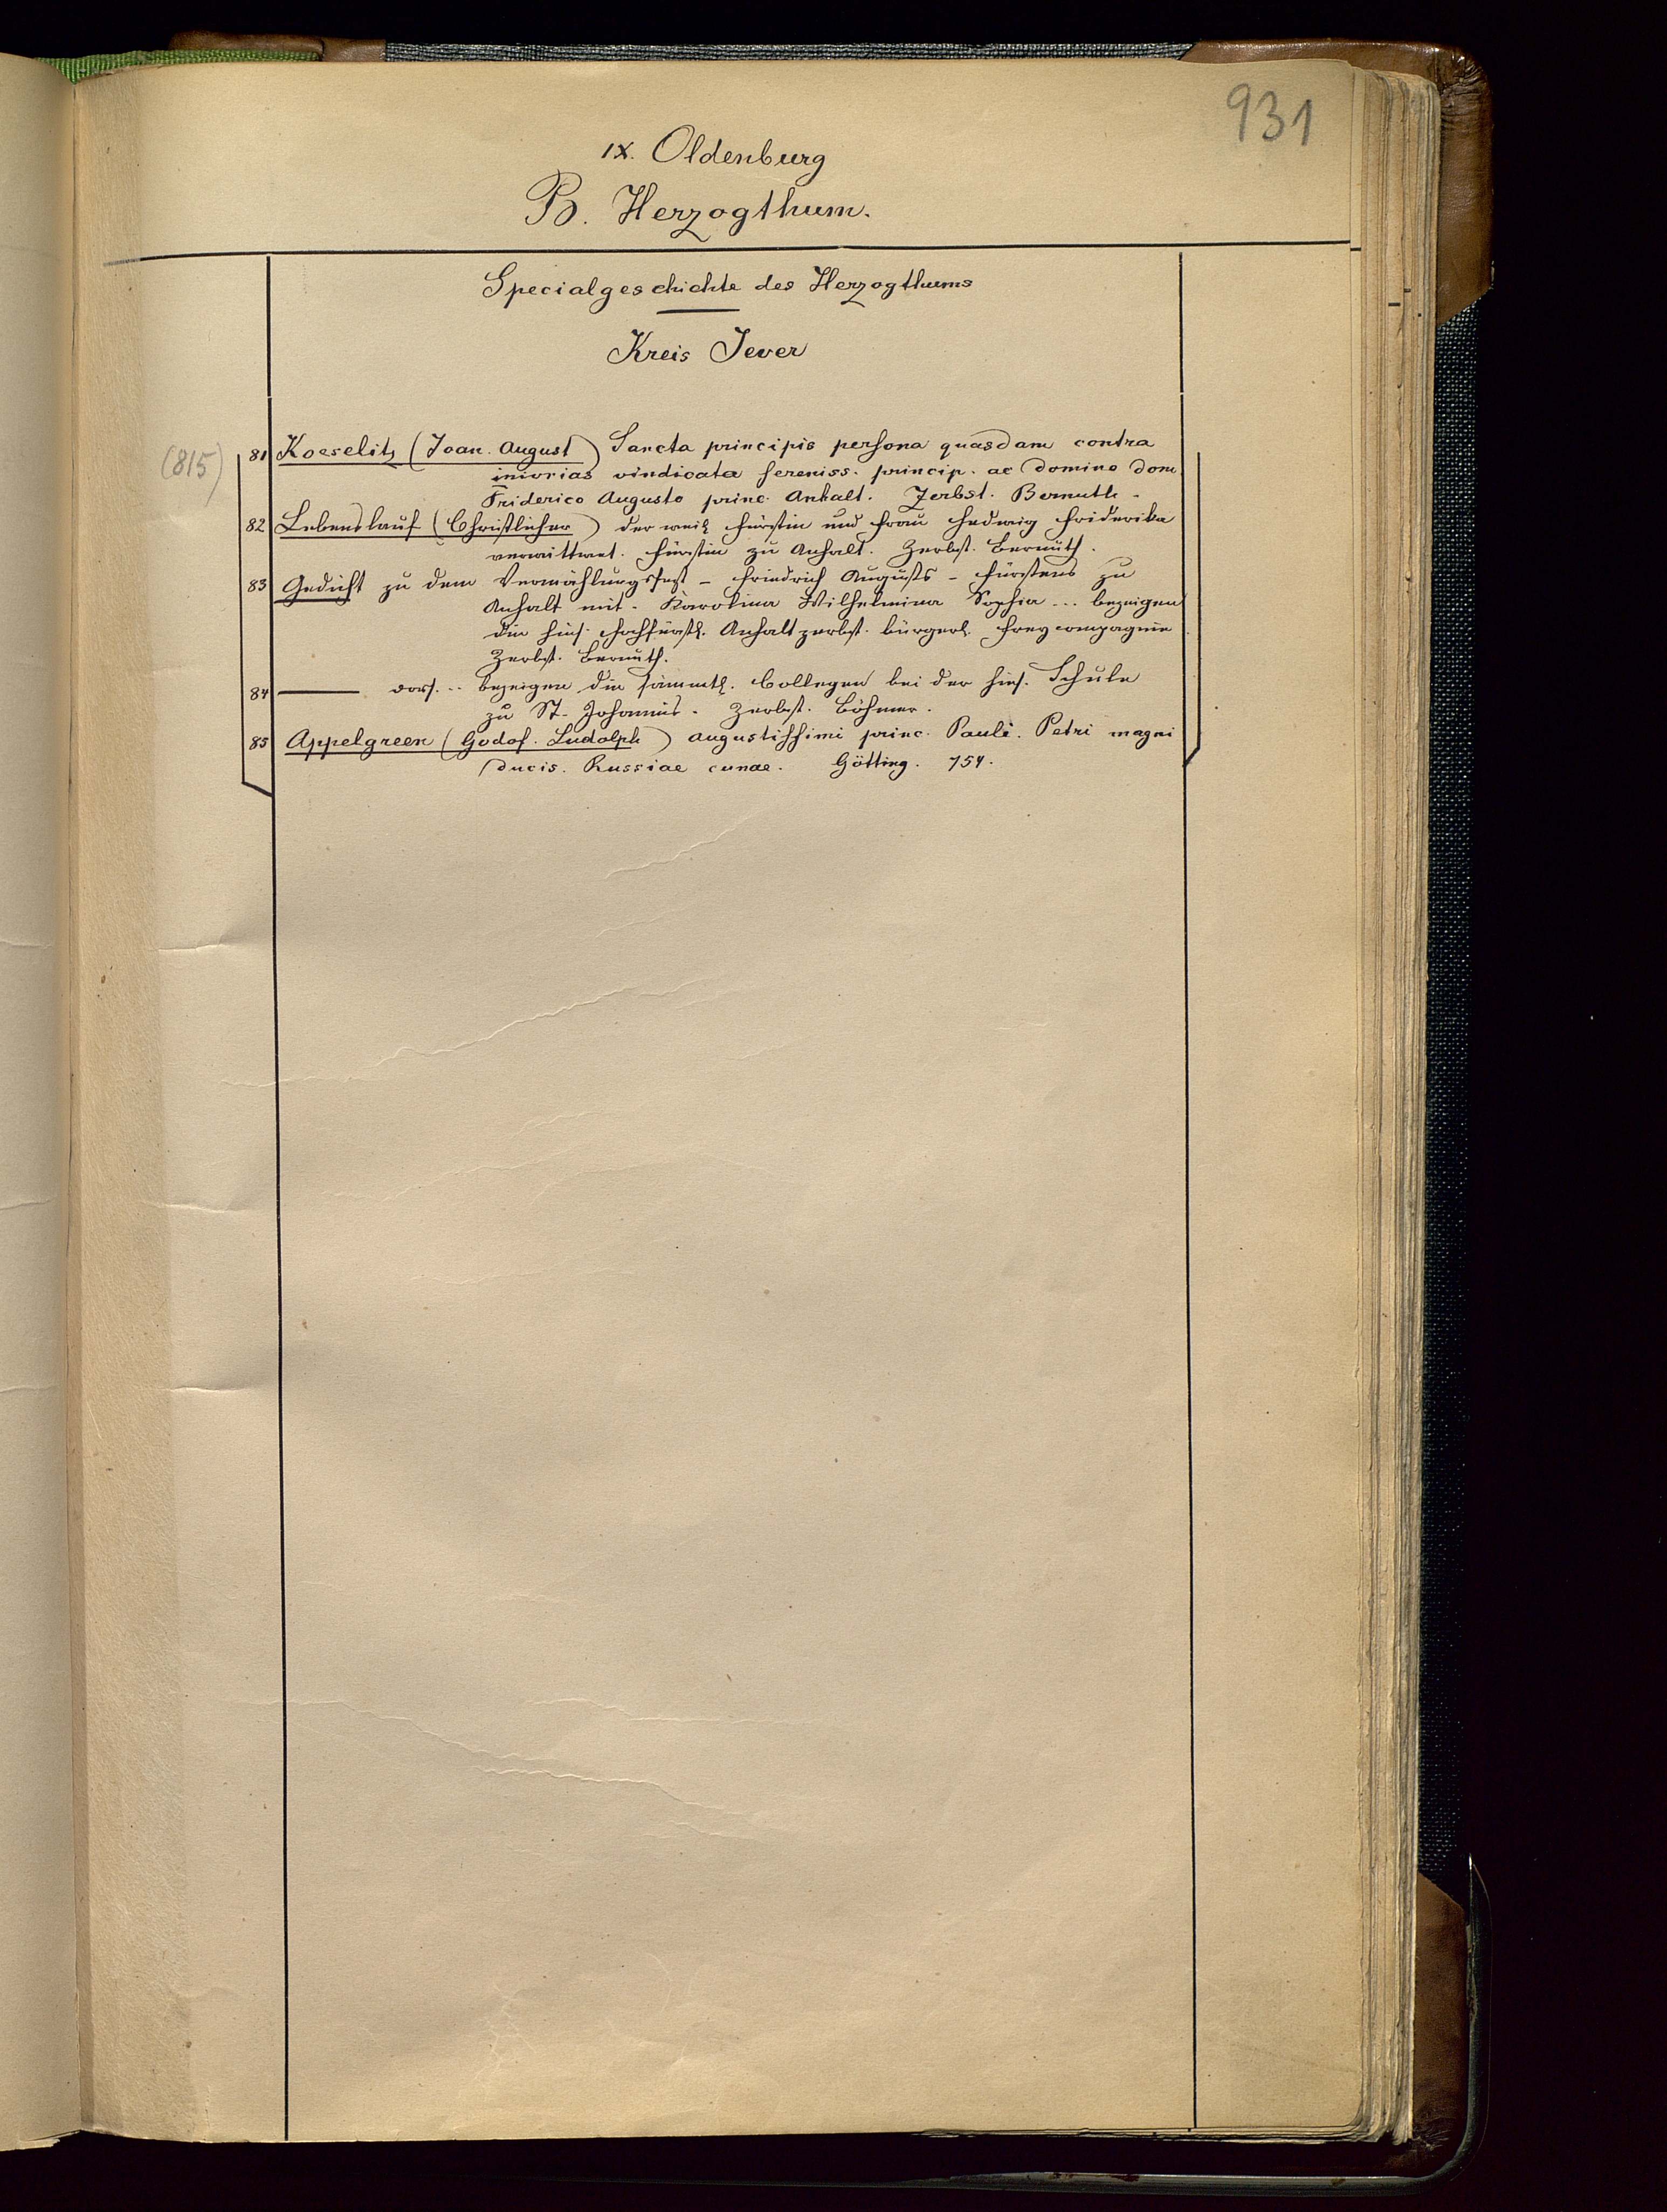 931
IX. Oldenburg
B. Herzogthum.
Specialgeschichte des Herzogthums
Kreis Jever
(815)
81 Koeselitz (Joan. August) Sancta principis persona quasdam contra
iniurias vindicata sereniss. princip. ac domino dom
Friderico Augusto princ. Anhalt. Zerbst. Bernuth.
82 Lebenslauf (Christlicher) der weil. Fürstin und Frau Hedwig Friderika
verwittwet. Fürstin zu Anhalt. Zerbst. Bernuth.
83 Gedicht zu dem Vermählungsfest – Friedrich Augusts – Fürstens zu
Anhalt mit. Karolina Wilhelmina Sophia ... bezeigen
die hies. Hochfürstl. Anhalt zerbst. bürgerl. Freycompagnie
Zerbst. Bernuth.
84 —— dass. .. bezeigen die sämmtl. Collegen bei der hies. Schule
zu St. Johannis. Zerbst. Böhmer.
85 Appelgreen (Godof. Ludolph) augustissimi princ. Pauli. Petri magni
ducis. Russiae cunae. Götting. 754.